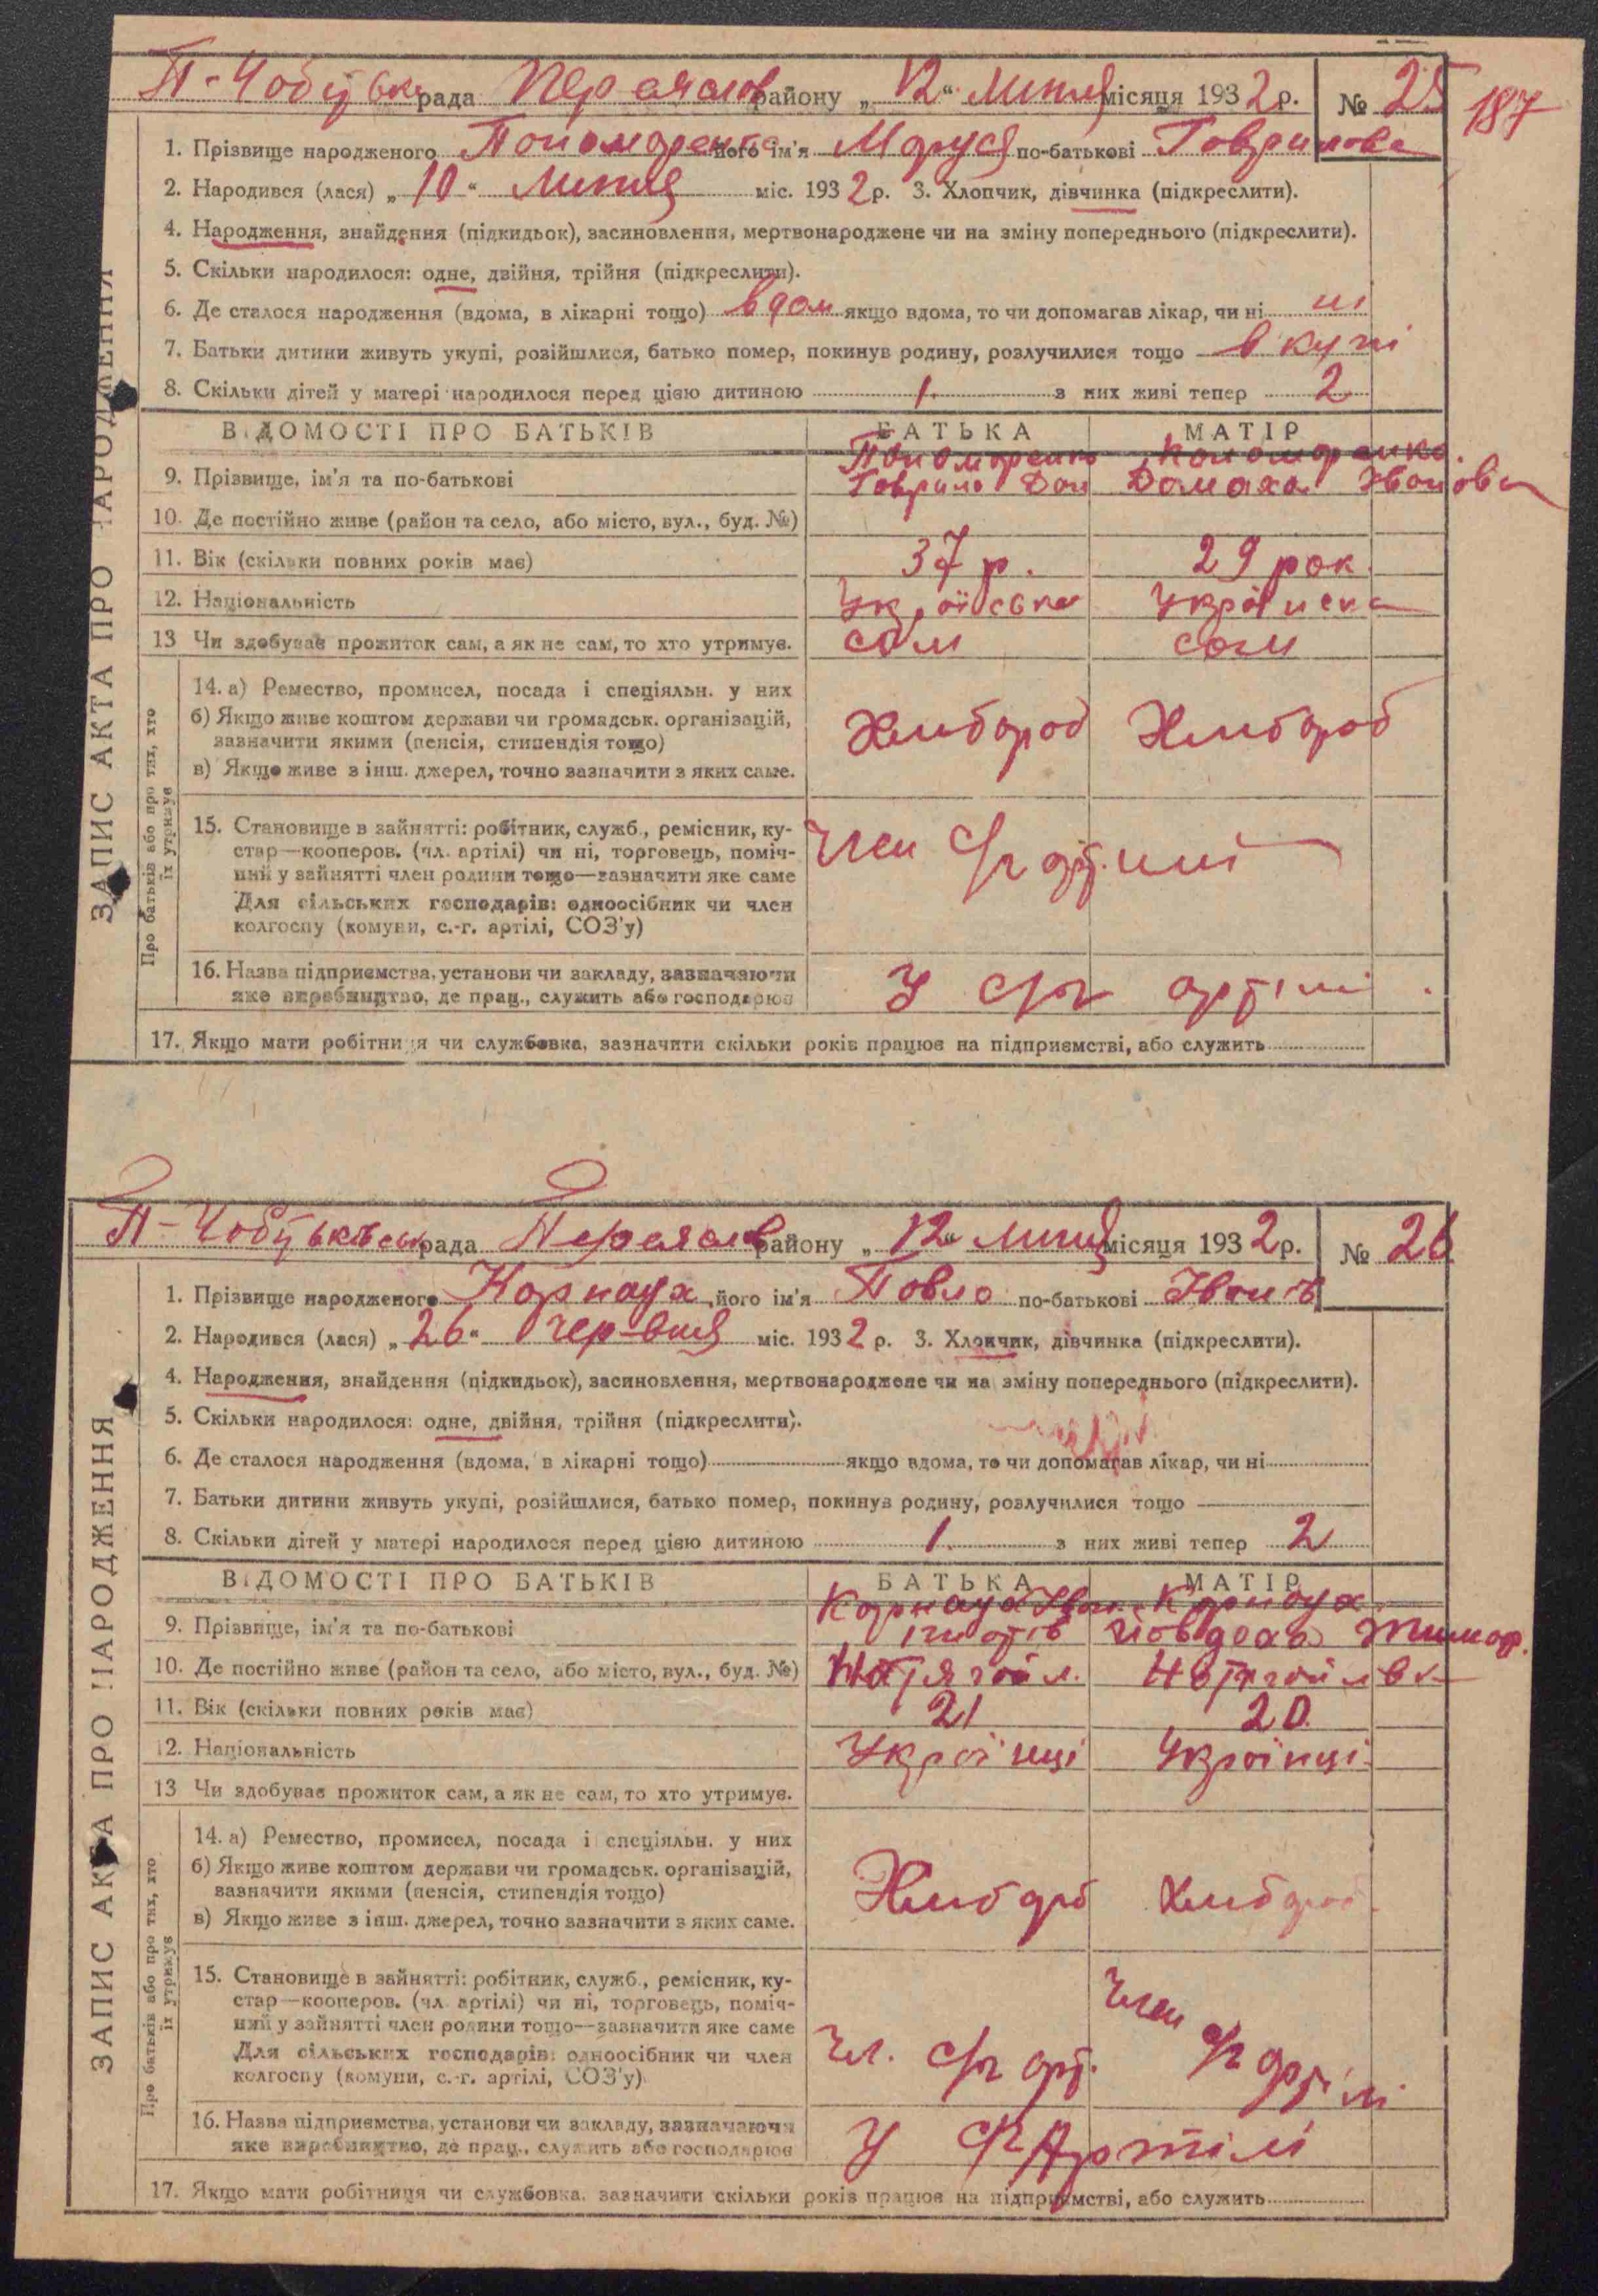 187
П-Чобітьке рада Переяслов району „12“ Липня місяця 1932 р. № 25
1. Прізвище народженого Пономаренко його ім'я Маруся по-батькові Говрилова
2. Народився (лася) „10“ Липня міс. 1932 р. 3. Хлопчик, дівчинка (підкреслити).
4. Народження, знайдення (підкидьок), засиновлення, мертвонароджене чи на зміну попереднього (підкреслити).
5. Скільки народилося: одне, двійня, трійня (підкреслити).
6. Де сталося народження (вдома, в лікарні тощо) вдом якщо вдома, то чи допомагав лікар, чи ні ні
7. Батьки дитини живуть укупі, розійшлися, батько помер, покинув родину, розлучилися тощо в купі
8. Скільки дітей у матері народилося перед цією дитиною 1. з них живі тепер 2
ВІДОМОСТІ ПРО БАТЬКІВ БАТЬКА МАТІР
Пономоренко Пономоренко
9. Прізвище, ім'я та по-батькові Говрило Дон Домаха Івонова
10. Де постійно живе (район та село, або місто, вул., буд. №)
11. Вік (скільки повних років має) 37 р. 29 рок
12. Національність Українська Українска
13 Чи здобуває прожиток сам, а як не сам, то хто утримує. сом сом
14. а) Ремество, промисел, посада і спеціяльн. у них
б) Якщо живе коштом держави чи громадськ. організацій,
зазначити якими (пенсія, стипендія тощо) Хлибороб Хлибороб
в) Якщо живе з інш. джерел, точно зазначити з яких саме.
15. Становище в зайнятті: робітник, служб., ремісник, ку-
стар—кооперов. (чл. артілі) чи ні, торговець, поміч- Член с/г артилі
ний у зайнятті член родини тощо—зазначити яке саме
Для сільських господарів: одноосібник чи член
колгоспу (комуни, с.-г. артілі, СОЗ'у)
16. Назва підприємства, установи чи закладу, зазначаючи У с/г артілі
яке виробництво, де прац., служить або господарює
17. Якщо мати робітниця чи службовка, зазначити скільки років працює на підприємстві, або служить
ЗАПИС АКТА ПРО НАРОДЖЕННЯ
Про батьків або про тих, хто
їх утримує
П-Чобітьківська рада Переяслов району „12“ Липня місяця 1932 р. № 26
1. Прізвище народженого Корноух його ім'я Повло по-батькові Івонів
2. Народився (лася) „26“ червня міс. 1932 р. 3. Хлопчик, дівчинка (підкреслити).
4. Народження, знайдення (підкидьок), засиновлення, мертвонароджене чи на зміну попереднього (підкреслити).
5. Скільки народилося: одне, двійня, трійня (підкреслити).
6. Де сталося народження (вдома, в лікарні тощо) якщо вдома, то чи допомагав лікар, чи ні
7. Батьки дитини живуть укупі, розійшлися, батько помер, покинув родину, розлучилися тощо
8. Скільки дітей у матері народилося перед цією дитиною 1. з них живі тепер 2
ВІДОМОСТІ ПРО БАТЬКІВ БАТЬКА МАТІР
Корноух Іван Корноух
9. Прізвище, ім'я та по-батькові
10. Де постійно живе (район та село, або місто, вул., буд. №)
11. Вік (скільки повних років має) 21 20
12. Національність Українці Українці
13 Чи здобуває прожиток сам, а як не сам, то хто утримує.
14. а) Ремество, промисел, посада і спеціяльн. у них
б) Якщо живе коштом держави чи громадськ. організацій,
зазначити якими (пенсія, стипендія тощо) Хлибороб Хлибороб
в) Якщо живе з інш. джерел, точно зазначити з яких саме.
15. Становище в зайнятті: робітник, служб., ремісник, ку-
стар—кооперов. (чл. артілі) чи ні, торговець, поміч-
ний у зайнятті член родини тощо—зазначити яке саме
Для сільських господарів: одноосібник чи член Чл. с/г арт. Член с/г артілі
колгоспу (комуни, с.-г. артілі, СОЗ'у)
16. Назва підприємства, установи чи закладу, зазначаючи У с/г Артілі
яке виробництво, де прац., служить або господарює
17. Якщо мати робітниця чи службовка, зазначити скільки років працює на підприємстві, або служить
ЗАПИС АКТА ПРО НАРОДЖЕННЯ
Про батьків або про тих, хто
їх утримує